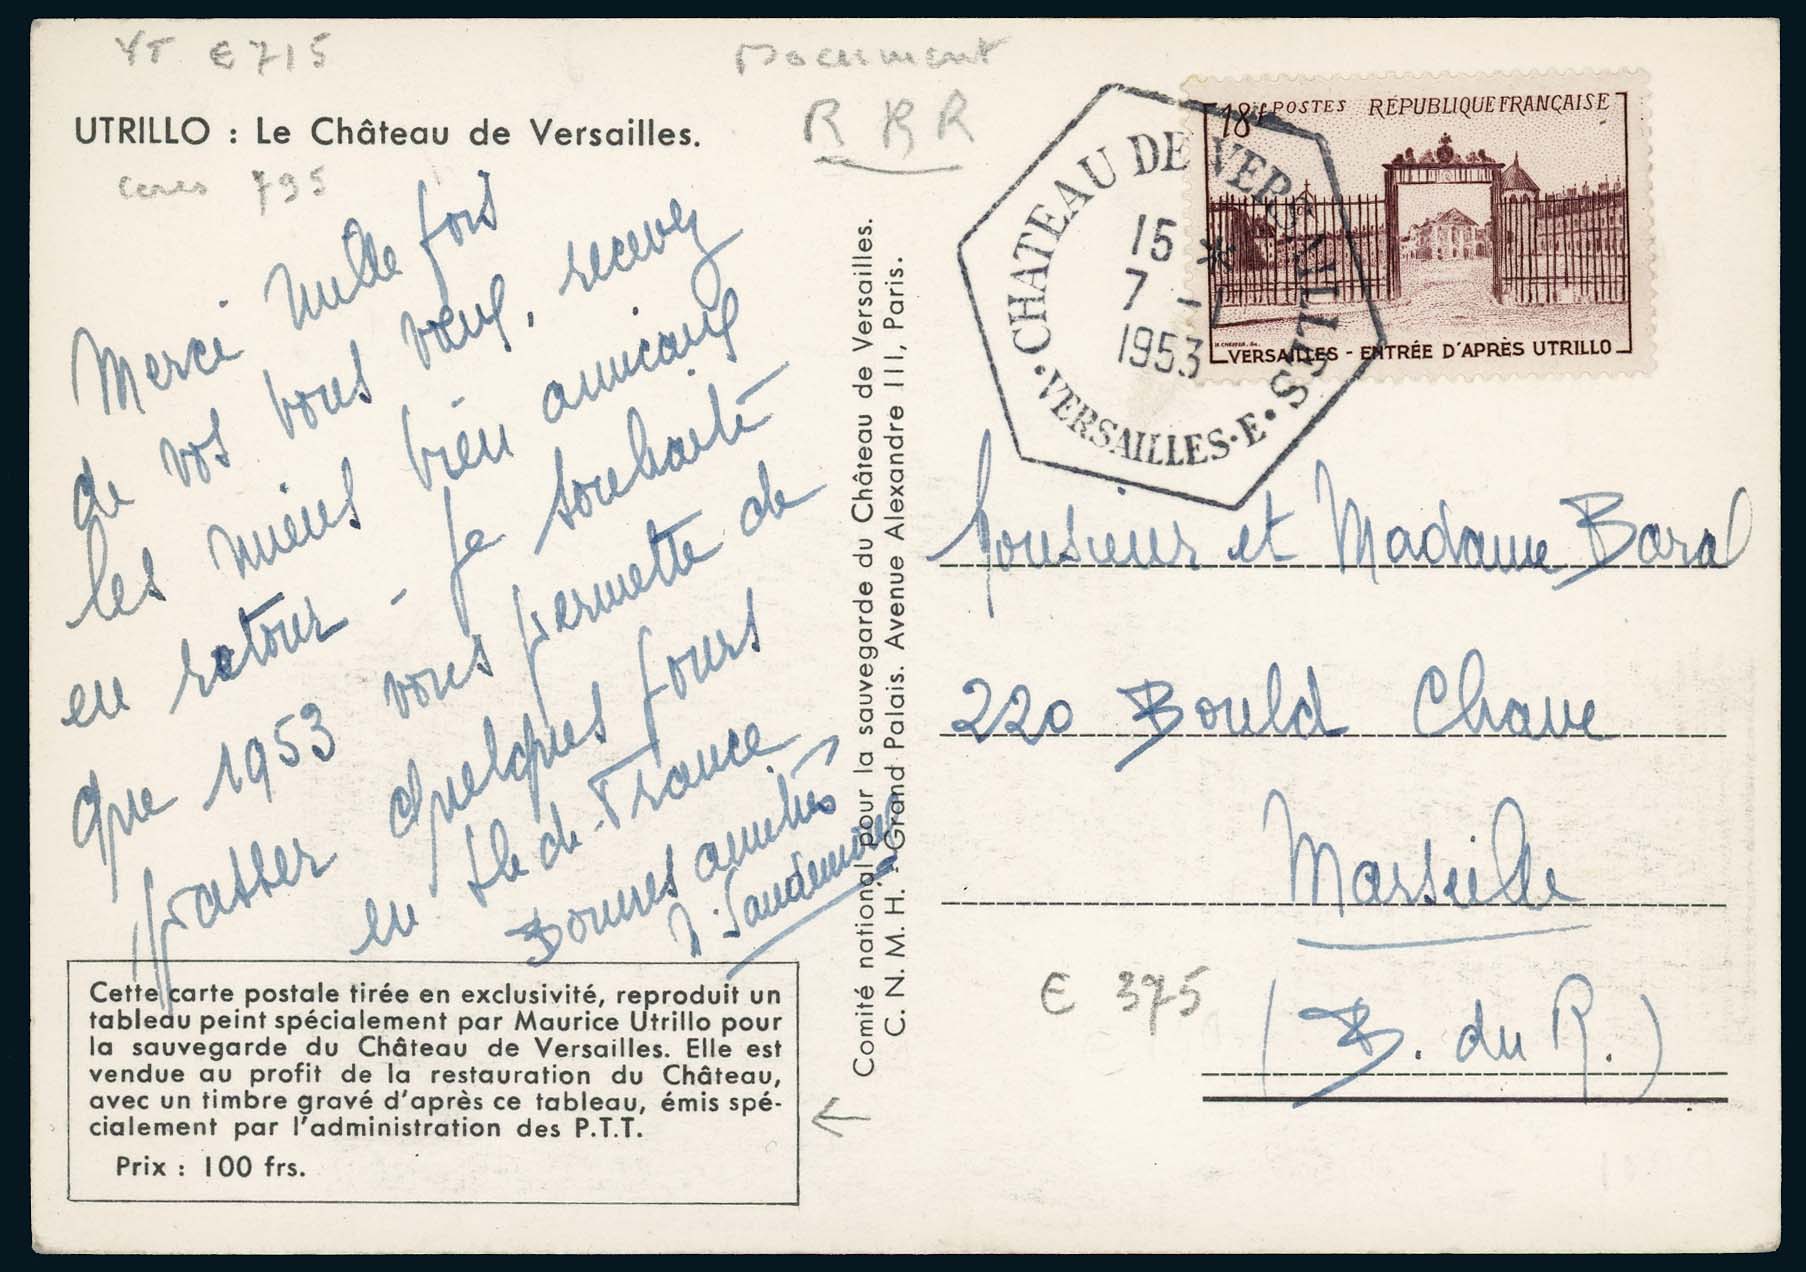 YT E715
Document
R R R
UTRILLO : Le Château de Versailles.
Ceres 795
Merci mille fois
de vos bons vœux, recevez
les miens bien amicaux
en retour - Je souhaite
que 1953 vous permette de
passer quelques jours
en Ile de-France
Bonnes amitiés
Cette carte postale tirée en exclusivité, reproduit un
tableau peint spécialement par Maurice Utrillo pour
la sauvegarde du Château de Versailles. Elle est
vendue au profit de la restauration du Château,
avec un timbre gravé d'après ce tableau, émis spé-
cialement par l'administration des P.T.T.
Prix : 100 frs.
Comité national pour la sauvegarde du Château de Versailles.
C. N. M. H. - Grand Palais. Avenue Alexandre III, Paris.
CHATEAU DE VERSAILLES
15 *
7 - 1
1953
• VERSAILLES • E •
18f POSTES RÉPUBLIQUE FRANÇAISE
VERSAILLES - ENTRÉE D'APRÈS UTRILLO
Monsieur et Madame Baral
220 Bould Chave
Marseille
(B. du R.)
E 375